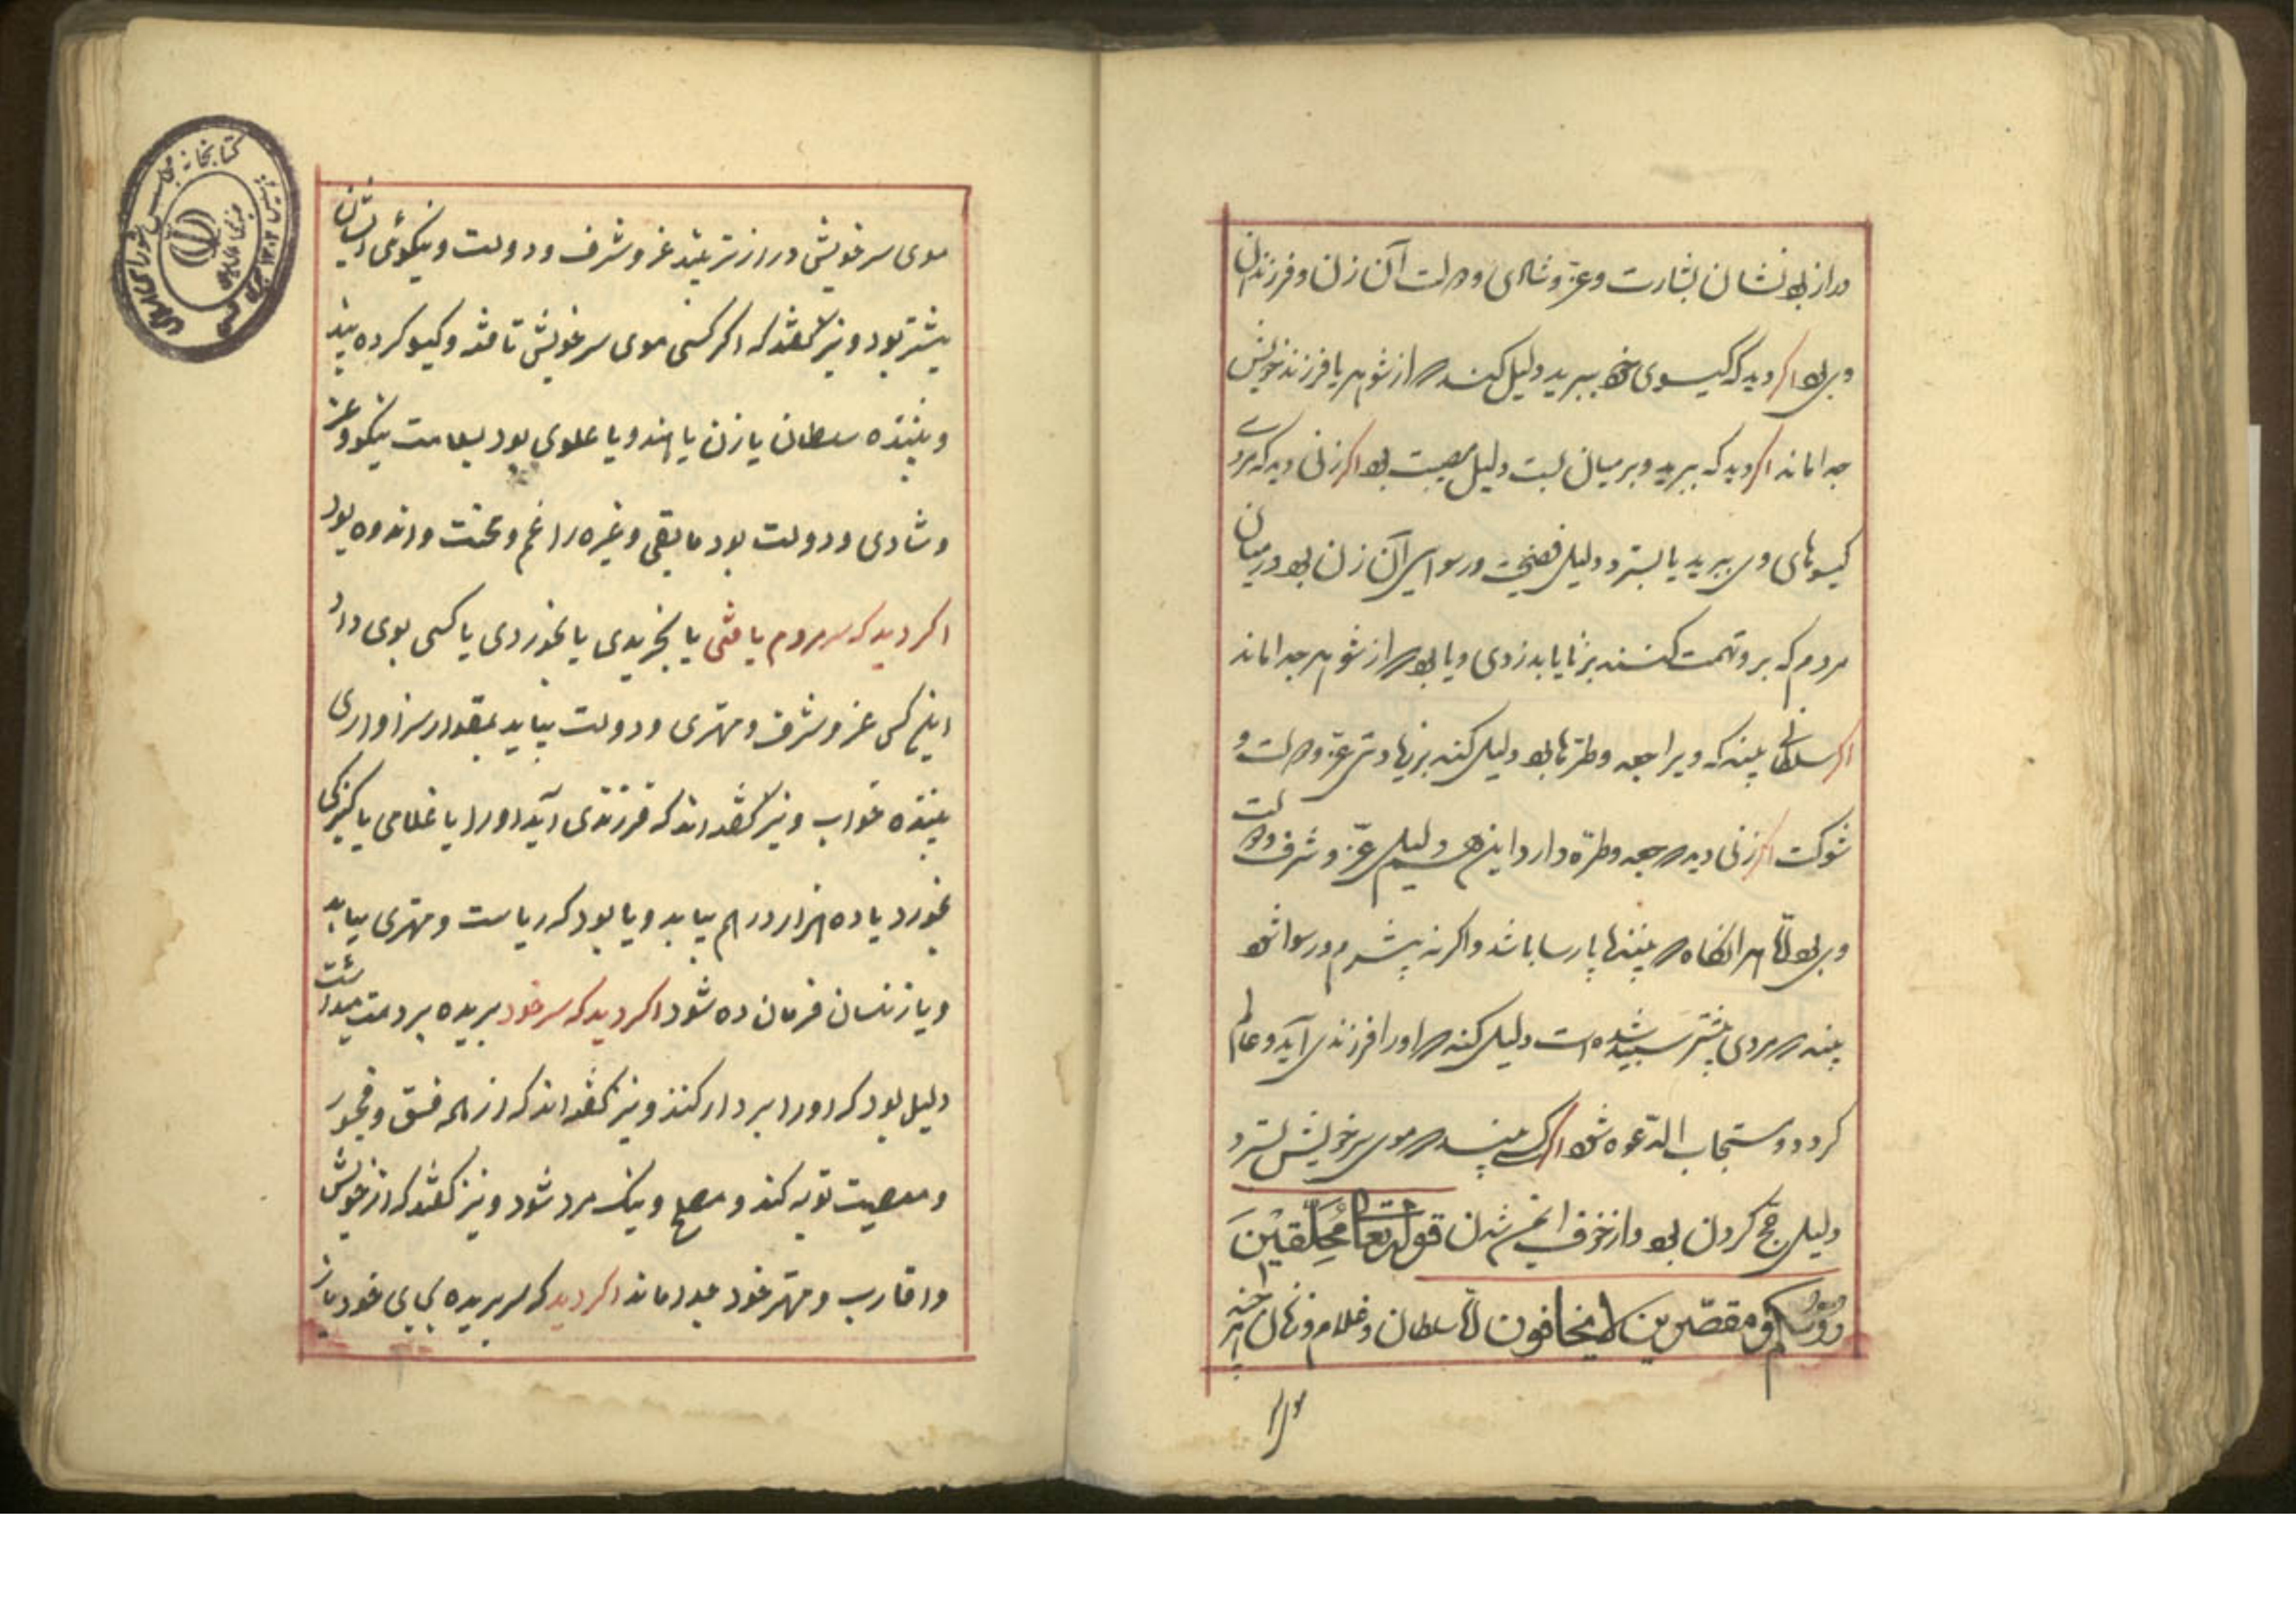 دراز بود نشان بشارت و عز و شادی و دولت آن زن و فرزندان
وی بود اگر دید که گیسوی خود ببرید دلیل کند که از شوهر یا فرزند خویش
جدا ماند اگر دید که ببرید و بر میان بست دلیل مصیبت بود اگر زنی دید که مردی
گیسوهای وی ببرید یا بسترد دلیل فضیحت و رسوایی آن زن بود در میان
مردم که برو تهمت کنند بزنا یا بدزدی و یا بود که از شوهر جدا ماند
اگر سلطانی بیند که ویرا جعد و طره‌ها بود دلیل کند بزیادتی عز و دولت و
شوکت اگر زنی دید که جعد و طره دارد این هم دلیل عز و شرف و دولت
وی بود اما هر آنگاه که بیننده پارسا باشد و اگر نه بیشرم و رسوا شود
بیند که مردی بیشتر سپید شده است دلیل کند که او را فرزندی آید و عالم
گردد و مستجاب الدعوه شود اگر کسی بیند که موی سر خویش بسترد
دلیل حج کردن بود و از خوف ایمن شدن قوله تعالی مُحَلِّقینَ
رؤسکم و مقصّرین لا تخافون اما سلطان و غلام و زنان
موی سر خویش درازتر بیند عز و شرف و دولت و نیکوئی ایشان
بیشتر بود و نیز گفتند که اگر کسی موی سر خویش تافته و گیسو کرده بیند
و بیننده سلطان یا زن یا هندو یا علوی بود بسلامت نیکو و عز
و شادی و دولت بود مابقی و غیره را غم و محنت و اندوه بود
اگر دید که سر مردم یافتی یا بخریدی یا بخوردی یا کسی بوی داد
اینکس عز و شرف و مهتری و دولت بیابد بمقدار سزاواری
بیننده خواب و نیز گفته اند که فرزندی آید او را یا غلامی یا کنیزکی
بخورد یا ده هزار درهم بیابد و یا بود که ریاست و مهتری بیابد
و یا زنسان فرمان ده شود اگر دید که سر خود بریده بر دست میداشت
دلیل بود که او را بر دار کنند و نیز گفته اند که از همه فسق و فجور
و معصیت توبه کند و مصلح و نیک مرد شود و نیز گفتند که از خویش
و اقارب و مهتر خود جدا ماند اگر دید که سر بریده بجای خود باز